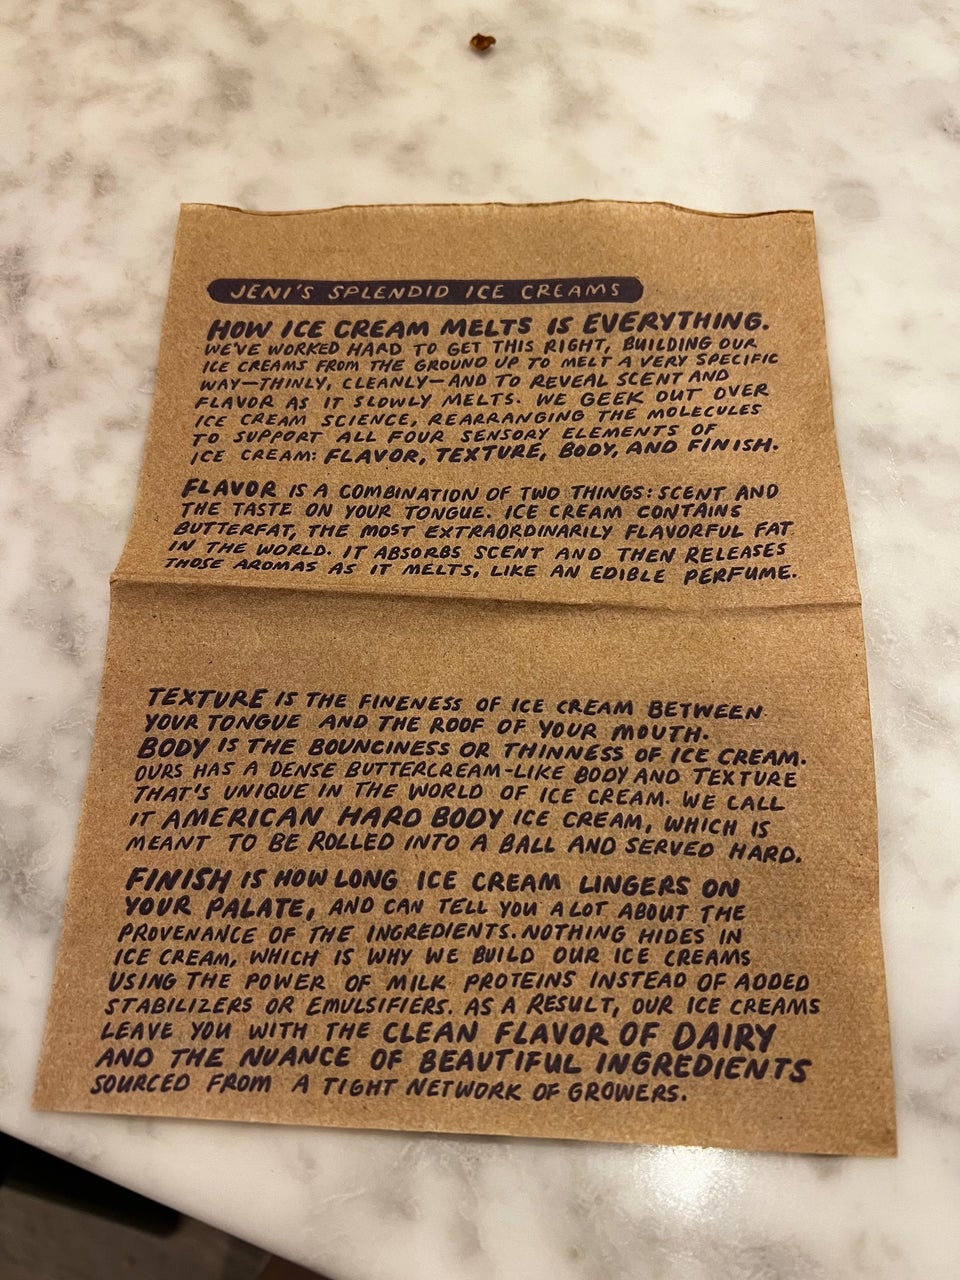 JENI'S SPLENDID ICE CREAMS
HOW ICE CREAM MELTS IS EVERYTHING.
WE'VE WORKED HARD TO GET THIS RIGHT, BUILDING OUR
ICE CREAMS FROM THE GROUND UP TO MELT A VERY SPECIFIC
WAY—THINLY, CLEANLY—AND TO REVEAL SCENT AND
FLAVOR AS IT SLOWLY MELTS. WE GEEK OUT OVER
ICE CREAM SCIENCE, REARRANGING THE MOLECULES
TO SUPPORT ALL FOUR SENSORY ELEMENTS OF
ICE CREAM: FLAVOR, TEXTURE, BODY, AND FINISH.
FLAVOR IS A COMBINATION OF TWO THINGS: SCENT AND
THE TASTE ON YOUR TONGUE. ICE CREAM CONTAINS
BUTTERFAT, THE MOST EXTRAORDINARILY FLAVORFUL FAT
IN THE WORLD. IT ABSORBS SCENT AND THEN RELEASES
THOSE AROMAS AS IT MELTS, LIKE AN EDIBLE PERFUME.
TEXTURE IS THE FINENESS OF ICE CREAM BETWEEN
YOUR TONGUE AND THE ROOF OF YOUR MOUTH.
BODY IS THE BOUNCINESS OR THINNESS OF ICE CREAM.
OURS HAS A DENSE BUTTERCREAM-LIKE BODY AND TEXTURE
THAT'S UNIQUE IN THE WORLD OF ICE CREAM. WE CALL
IT AMERICAN HARD BODY ICE CREAM, WHICH IS
MEANT TO BE ROLLED INTO A BALL AND SERVED HARD.
FINISH IS HOW LONG ICE CREAM LINGERS ON
YOUR PALATE, AND CAN TELL YOU A LOT ABOUT THE
PROVENANCE OF THE INGREDIENTS. NOTHING HIDES IN
ICE CREAM, WHICH IS WHY WE BUILD OUR ICE CREAMS
USING THE POWER OF MILK PROTEINS INSTEAD OF ADDED
STABILIZERS OR EMULSIFIERS. AS A RESULT, OUR ICE CREAMS
LEAVE YOU WITH THE CLEAN FLAVOR OF DAIRY
AND THE NUANCE OF BEAUTIFUL INGREDIENTS
SOURCED FROM A TIGHT NETWORK OF GROWERS.